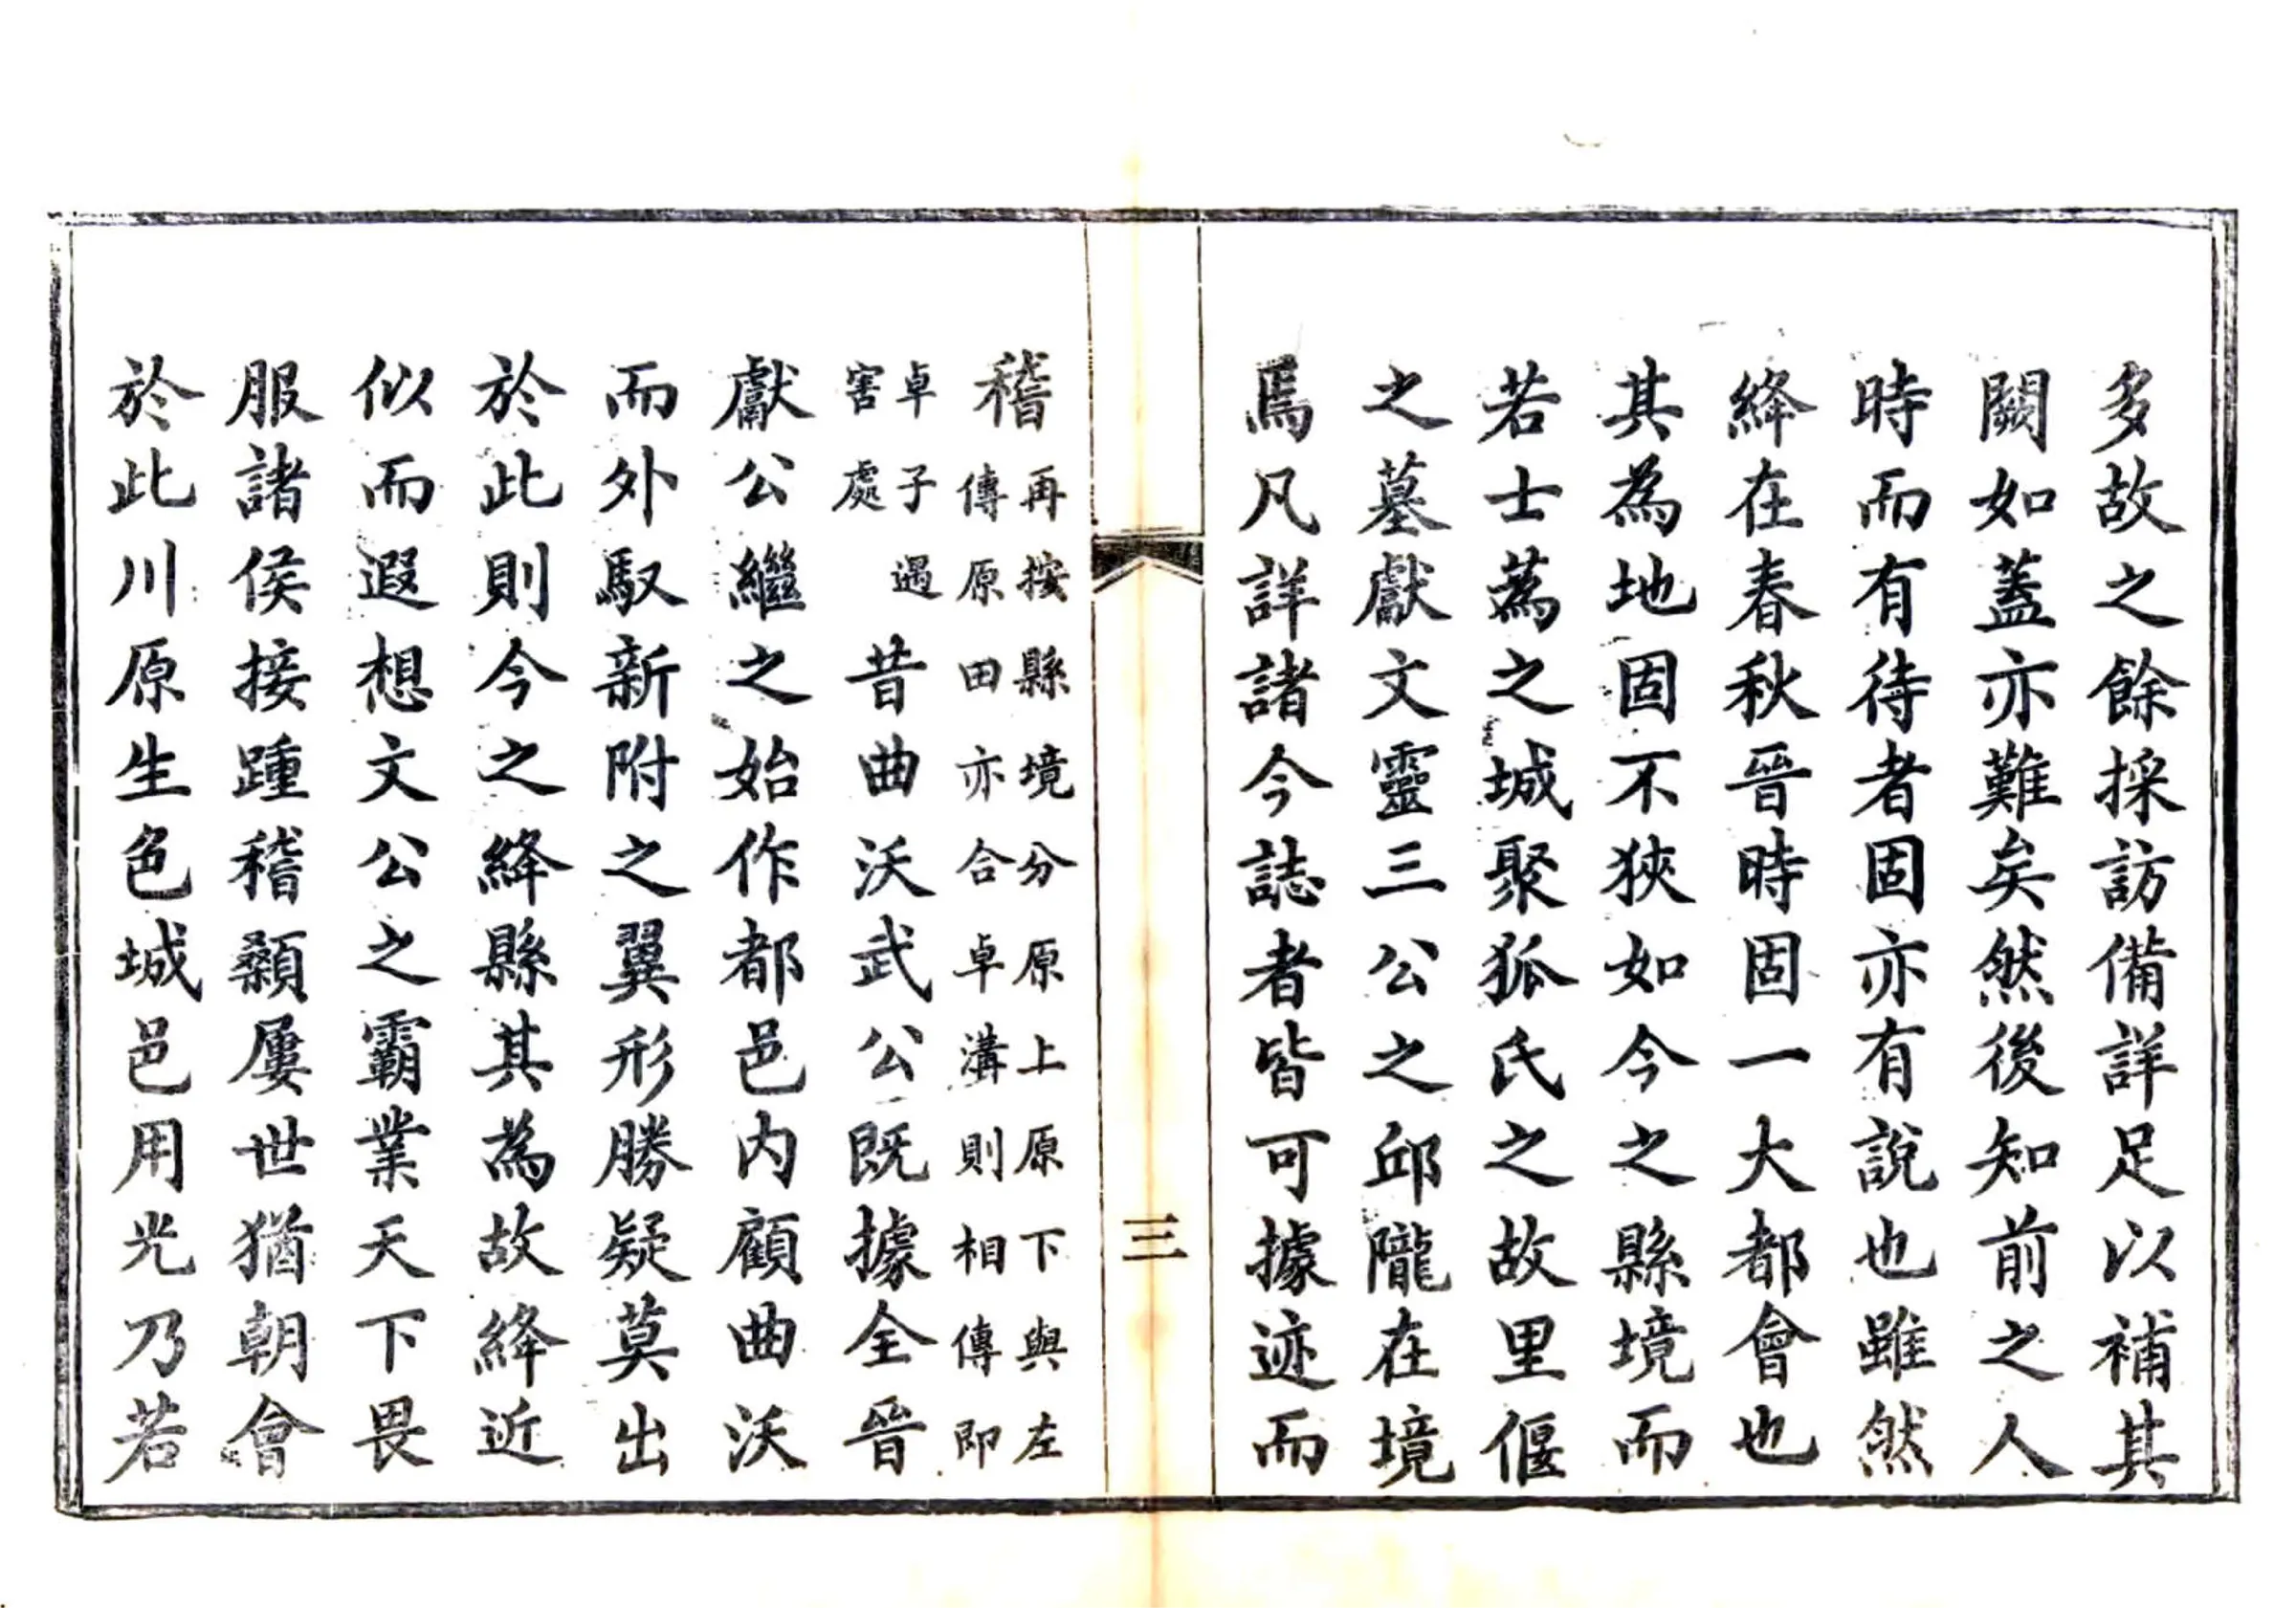 多故之餘採訪備詳足以補其
闕如蓋亦難矣然後知前之人
時而有待者固亦有說也雖然
絳在春秋晉時固一大都會也
其為地固不狹如今之縣境而
若士蒍之城聚狐氏之故里偃
之墓獻文靈三公之邱隴在境
焉凡詳諸今誌者皆可據迹而
三
稽
再按縣境分原上原下與左
傳原田亦合卓溝則相傳即
卓子遇
害處
昔曲沃武公既據全晉
獻公繼之始作都邑內顧曲沃
而外馭新附之翼形勝疑莫出
於此則今之絳縣其為故絳近
似而遐想文公之霸業天下畏
服諸侯接踵稽顙屢世猶朝會
於此川原生色城邑用光乃若